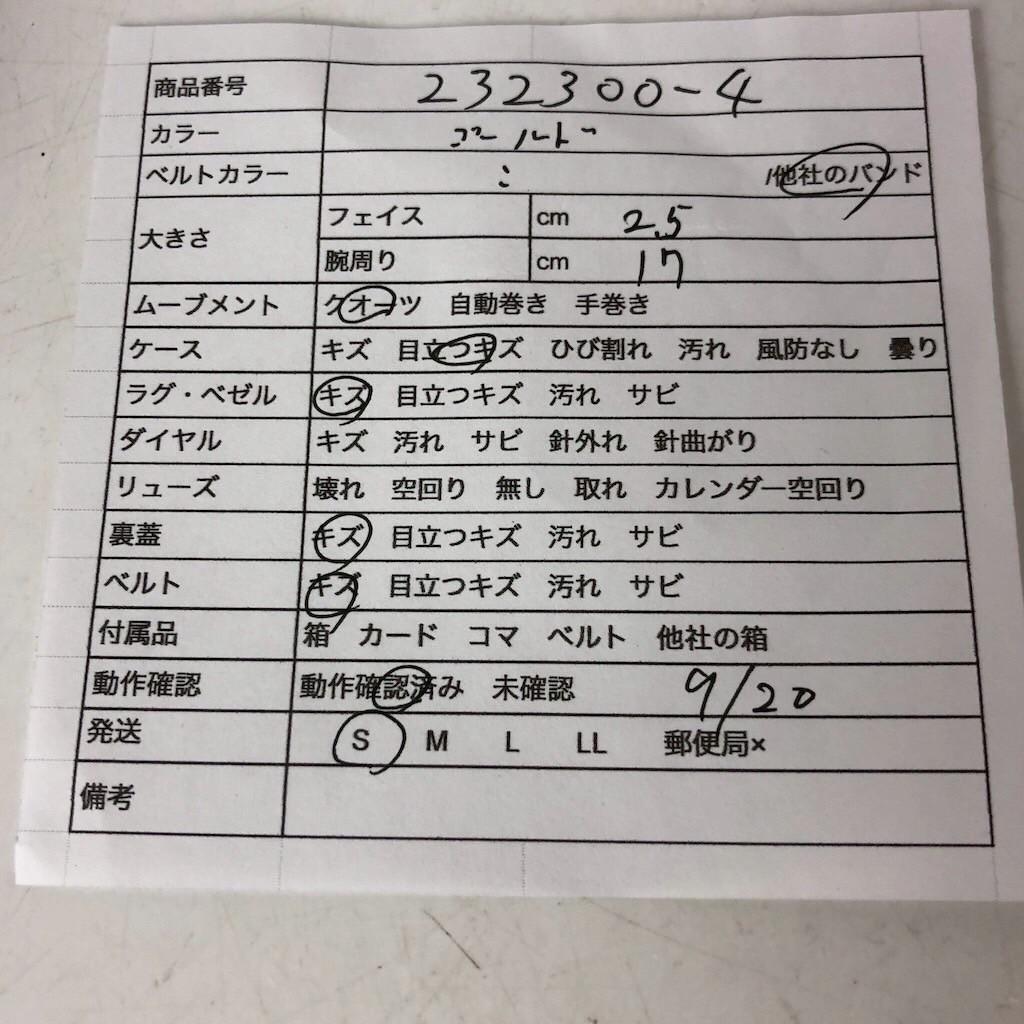 商品番号 232300-4
カラー ゴールド
ベルトカラー 〃 /他社のバンド
大きさ フェイス cm 2.5
腕周り cm 17
ムーブメント クオーツ 自動巻き 手巻き
ケース キズ 目立つキズ ひび割れ 汚れ 風防なし 曇り
ラグ・ベゼル キズ 目立つキズ 汚れ サビ
ダイヤル キズ 汚れ サビ 針外れ 針曲がり
リューズ 壊れ 空回り 無し 取れ カレンダー空回り
裏蓋 キズ 目立つキズ 汚れ サビ
ベルト キズ 目立つキズ 汚れ サビ
付属品 箱 カード コマ ベルト 他社の箱
動作確認 動作確認済み 未確認 9/20
発送 S M L LL 郵便局×
備考